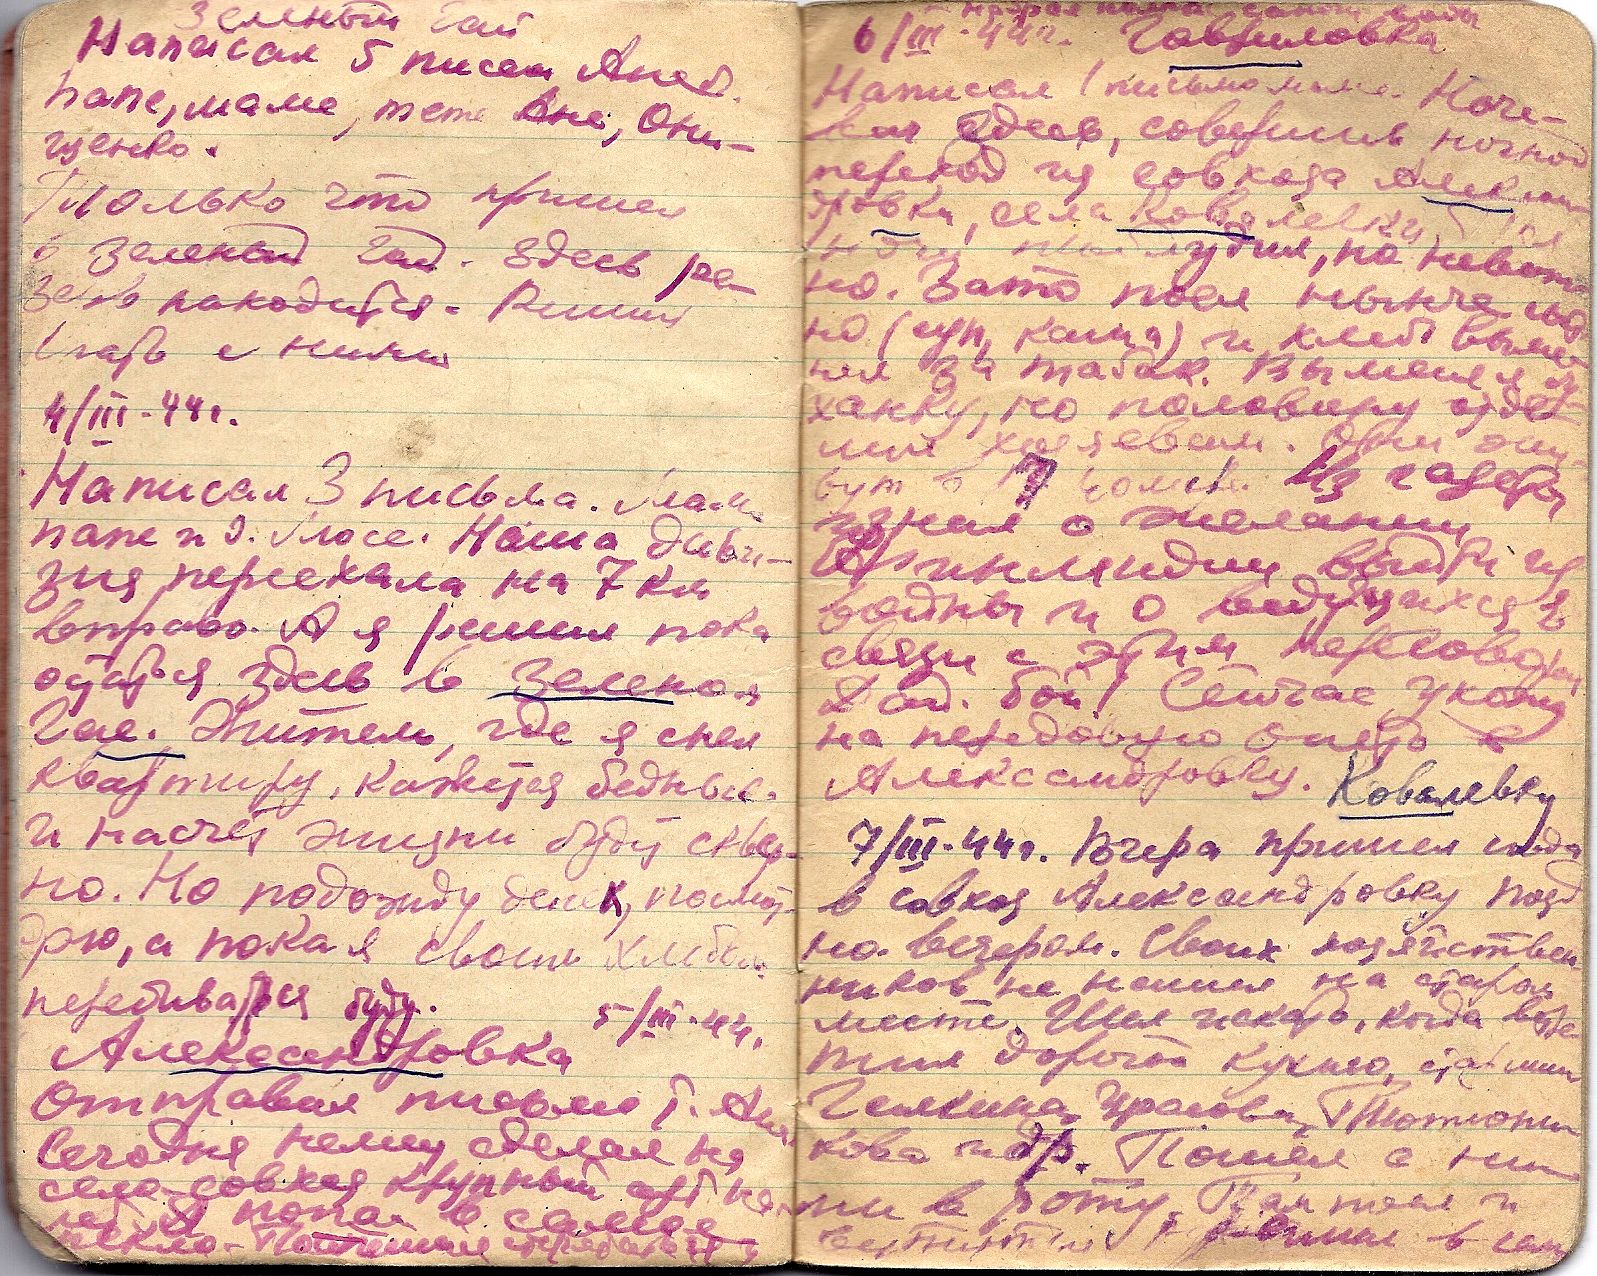 Зеленый Гай
Написал 5 писем Ане Б.
папе, маме, тете Ане, Они-
щенко.
Только что пришел
в Зеленый Гай. Здесь ре-
зерв находится. Решил
с ними
4/III-44г.
Написал 3 письма. Маме
папе и т. Люсе. Наша диви-
зия переехала на 7 км
вправо. А я решил пока
остаться здесь в Зеленом
Гае. Жители, где я снял
квартиру, кажется бедные.
и насчет жизни будет сквер-
но. Но подожду денек, посмот-
рю, а пока я своим хлебом
перебиваться буду. 5/III-44г.
Александровка
Отправил письмо т. Ане
Сегодня немец сделал на
село-совхоз крупный арт на-
лет. Я попал в самое
пекло.
6/III-44г. Гавриловка
Написал 1 письмо маме. Ноче-
вал здесь, совершив ночной
переход из совхоза Александ-
ровки, села Ковалевки.
ночи проблудил, но неважно
но. Зато поел нынче слав-
но (суп, каша) и хлеб выме-
нял за табак. Выменял бу-
ханку, но половину отдал
хозяевам. Они жи-
вут в Из газеты
узнал о желании
Финляндии выйти из
войны и о ведущихся в
связи с этим переговорах
Сейчас ухожу
на передовую в
Александровку. Ковалевку
7/III-44г. Вчера пришел сюда
в совхоз Александровку позд
но вечером. Своих хозяйствен-
ников не нашел на старом
месте. Шел искать, когда встре-
тил дорогой кухню, старшин
Галкина,
кова и др. Пошел с ни-
ми в роту. Там поел и
решил в сам